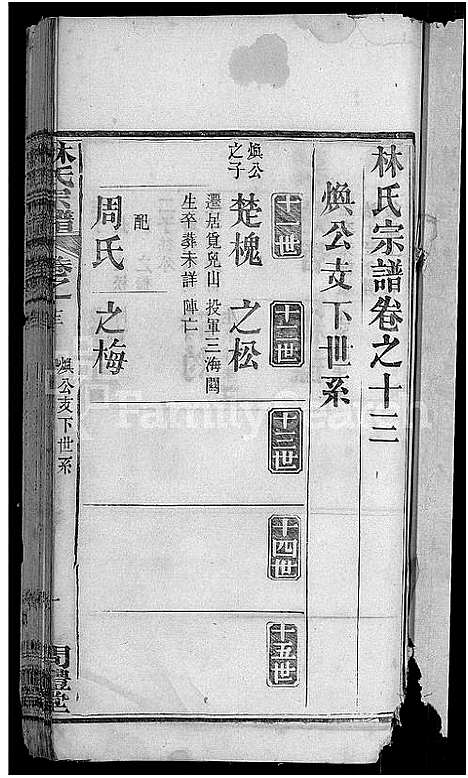 林氏宗譜卷之十三
煥公支下世系
十一世
十二世
十三世
十四世
十五世
煥公之子
楚槐
遷居覓兒山
生卒葬未詳
之松
投軍三海関
陣亡
配
周氏
之梅
林氏宗譜
卷之十三
煥公支下世系
一
問禮堂
FamilySearch